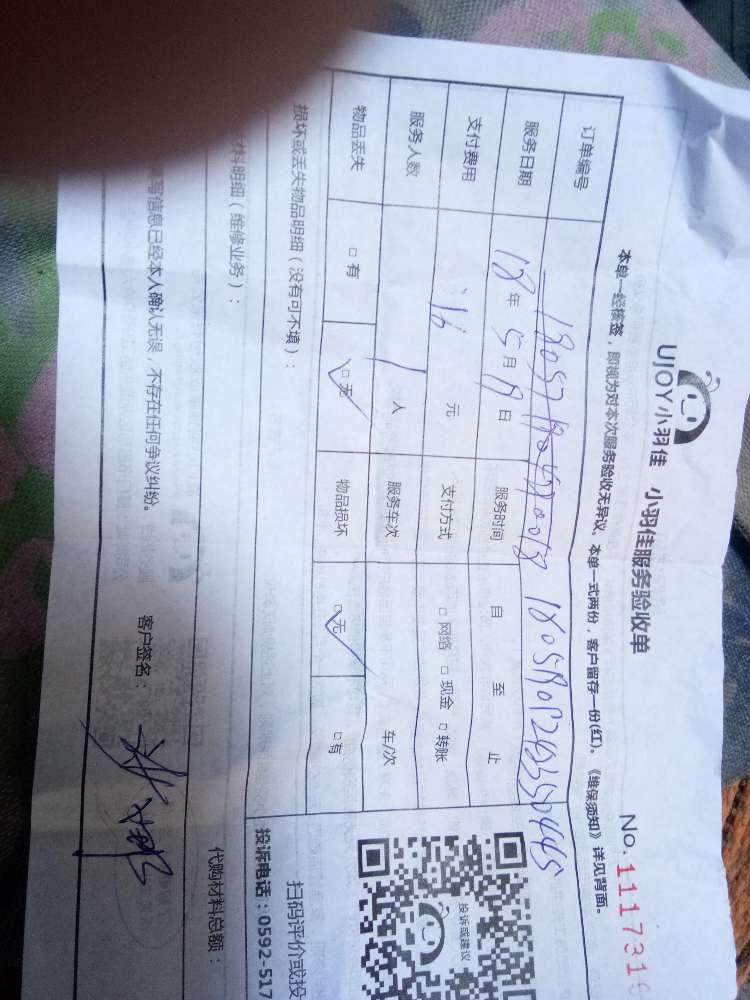 UJOY小羽佳 小羽佳服务验收单
No. 1117316
本单一经核签，即视为对本次服务验收无异议。本单一式两份，客户留存一份(红)。《维保须知》详见背面。
订单编号
服务日期 18年5月 日 服务时间 自 至 止
支付费用 元 支付方式 □网络 □现金 □转账
服务人数 1人 服务车次 车/次
物品丢失 □有 □无 物品损坏 □无 □有
损坏或丢失物品明细（没有可不填）：
投诉或建议
扫码评价或投
投诉电话：0592-517
料明细（维修业务）：
代购材料总额：
写信息已经本人确认无误，不存在任何争议纠纷。 客户签名：